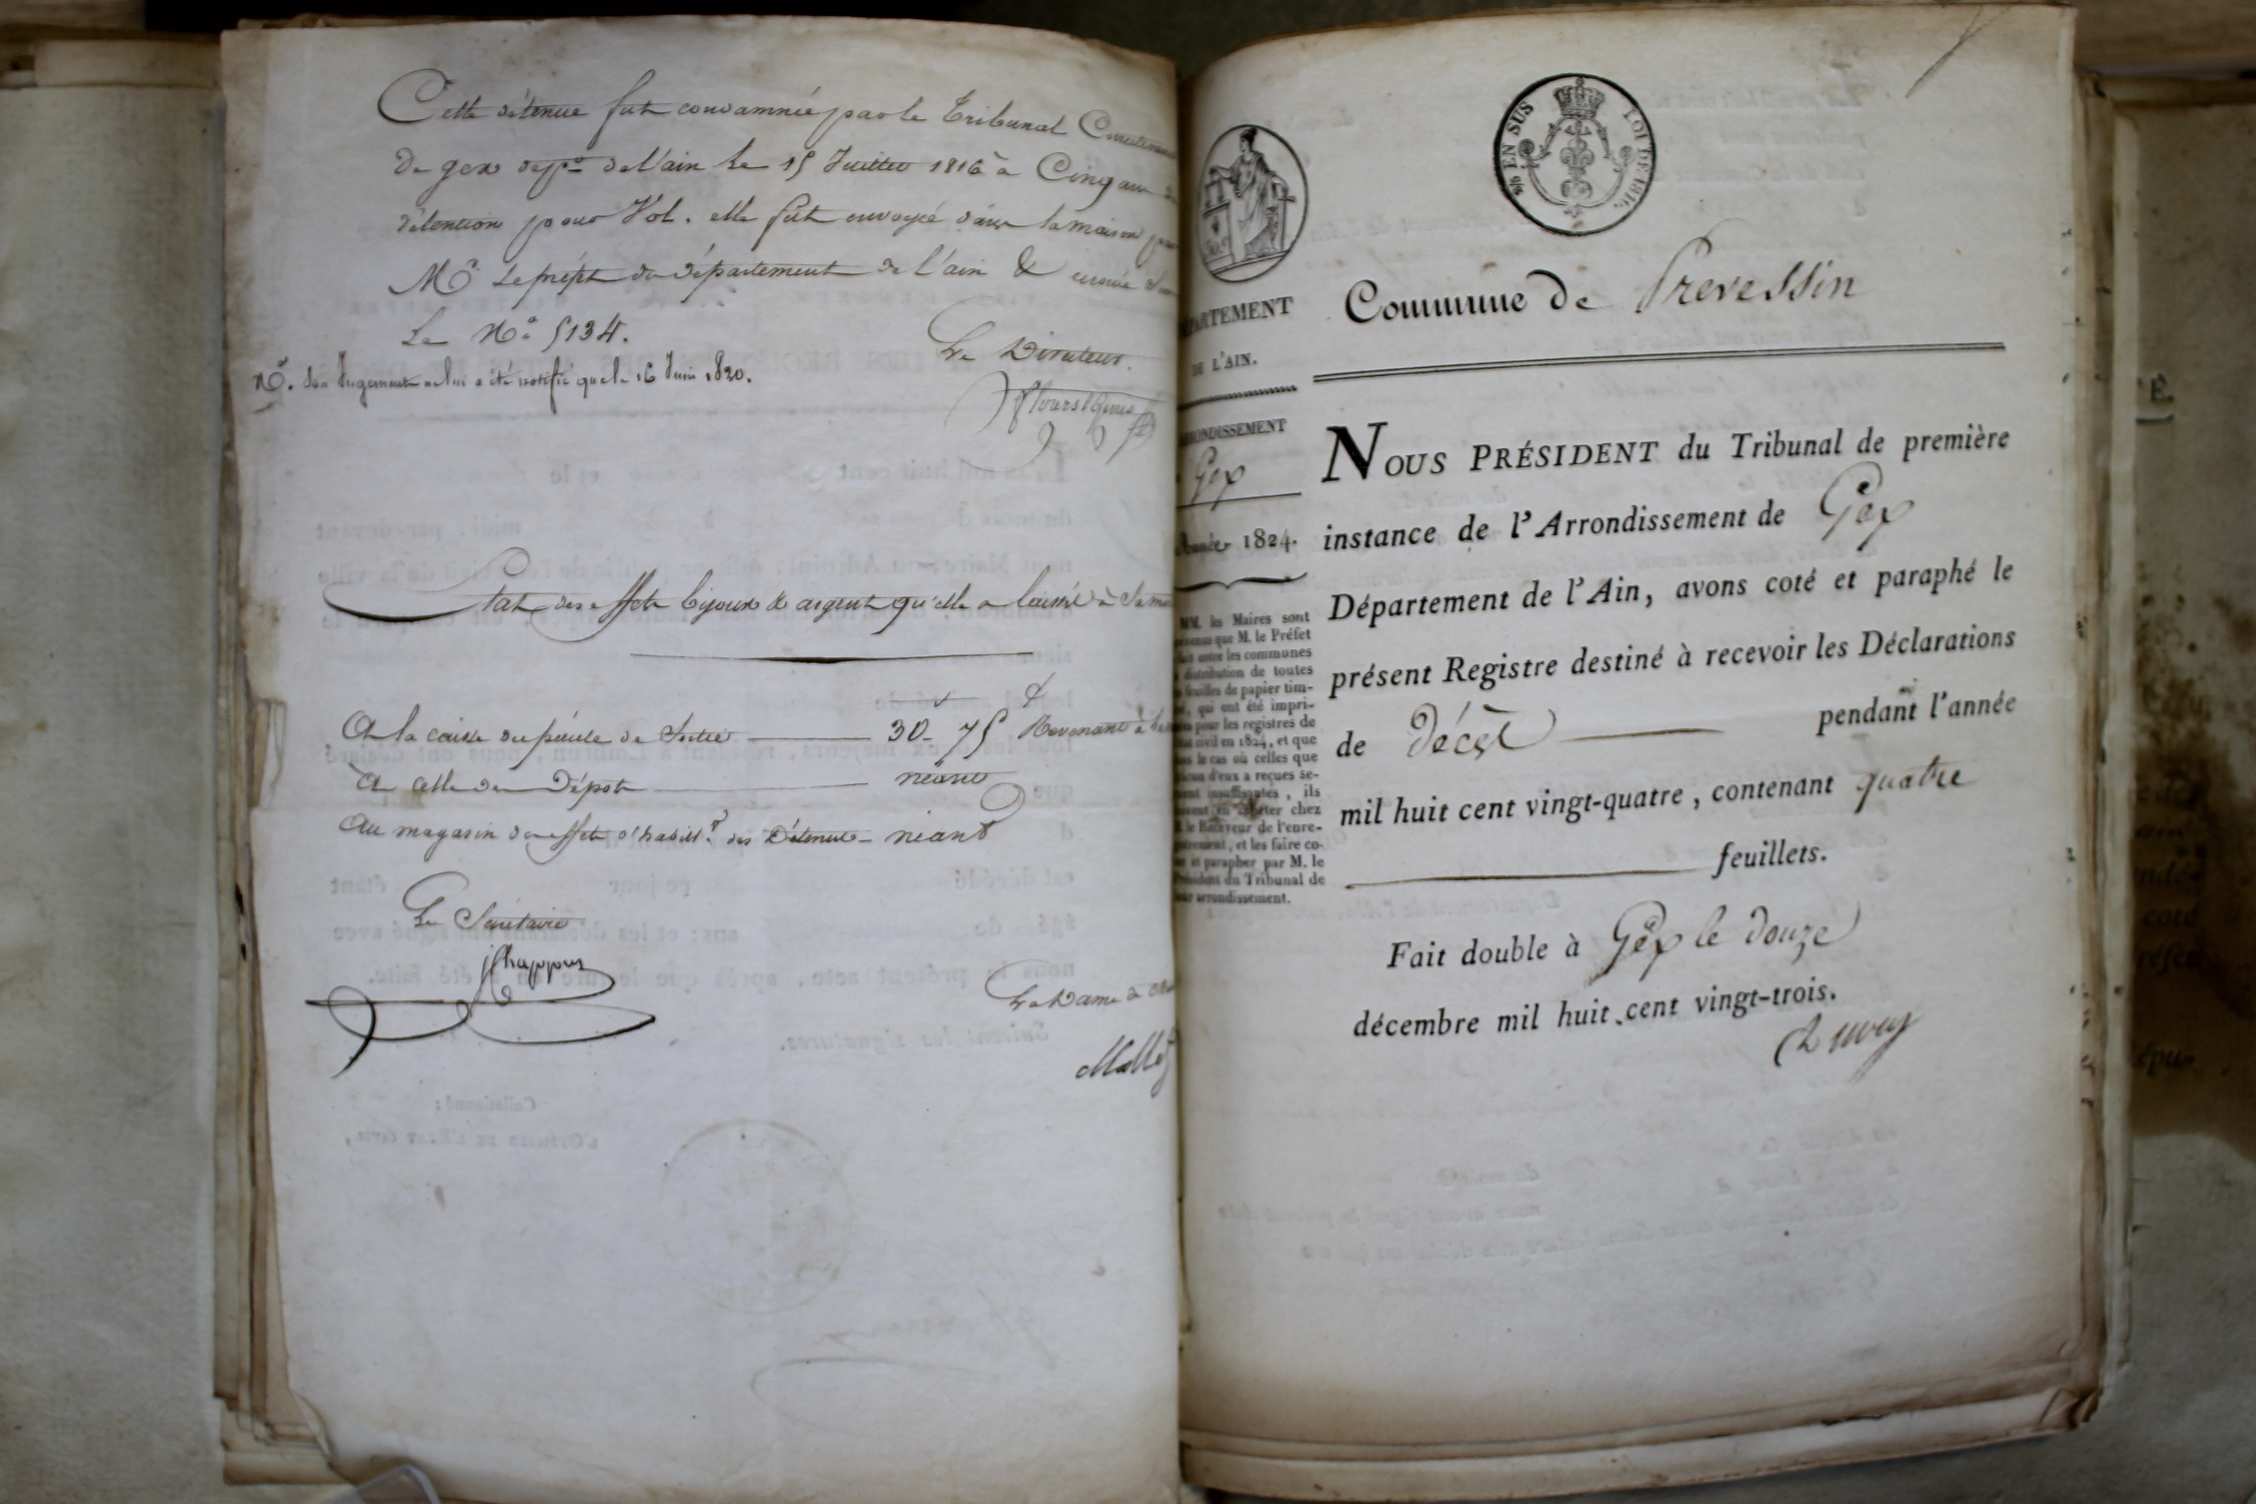 Cette détenue fut condamnée par le Tribunal
de gex dept de l'ain le 15 Juillet 1816 à Cinq ans
détention pour Vol. elle fut envoyée dans la maison
Mr Le préfet du département de l'ain &
Le No 5134.
Le Directeur.
Nª. Son Jugement ne lui a été notifié que le 16 Juin 1820.
Etat des effets bijoux & argent qu'elle a laissé à
à la caisse du pécule de Sortie 30 - 75
à celle du Dépot néant
Au magasin des effets d'habillt des Détenues - néant
Le Secrétaire
La Dame
EN SUS
LOI DE 1816.
Commune de Prevessin
DE L'AIN.
Gex
1824.
MM. les Maires sont
que M. le Préfet
entre les communes
distribution de toutes
feuilles de papier tim-
qui ont été impri-
pour les registres de
civil en 1824, et que
le cas où celles que
d'eux a reçues se-
insuffisantes, ils
chez
le Receveur de l'enre-
et les faire co-
et parapher par M. le
Président du Tribunal de
arrondissement.
NOUS PRÉSIDENT du Tribunal de première
instance de l'Arrondissement de Gex
Département de l'Ain, avons coté et paraphé le
présent Registre destiné à recevoir les Déclarations
de Décès pendant l'année
mil huit cent vingt-quatre, contenant quatre
feuillets.
Fait double à Gex le douze
décembre mil huit cent vingt-trois.